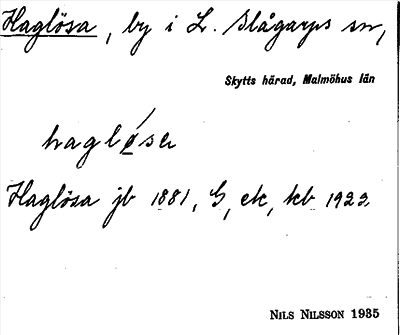 Haglösa, by i L. Slågarps sn,
Skytts härad, Malmöhus län
hagløsa
Haglösa jb 1881, G, ek, kb 1923.
NILS NILSSON 1935